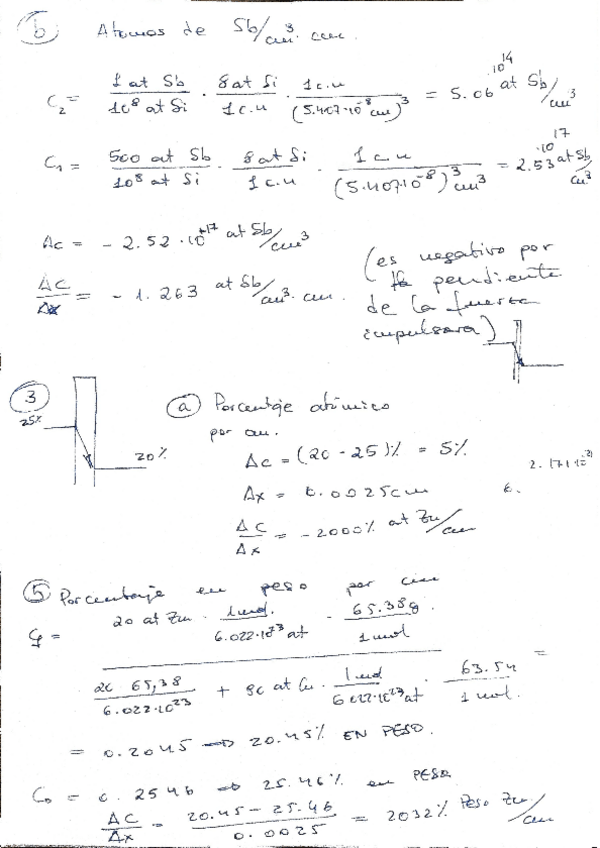 b Atomos de Sb/cm³·cm.
C₂ = 1 at Sb / 10⁸ at Si · 8 at Si / 1 c.u · 1 c.u / (5.407·10⁻⁸ cm)³ = 5.06 10¹⁴ at Sb/cm³
C₁ = 500 at Sb / 10⁸ at Si · 8 at Si / 1 c.u · 1 c.u / (5.407·10⁻⁸)³ cm³ = 2.53 ·10¹⁷ at Sb/cm³
Δc = - 2.52 · 10¹⁷ at Sb/cm³
ΔC/Δx = - 1.263 at Sb/cm³·cm.
(es negativo por
la pendiente
de la fuerza
impulsora)
3
25%
20%
a Porcentaje atómico
por cm.
Δc = (20 - 25)% = 5%
Δx = 0.0025cm
ΔC/Δx = - 2000% at Zn/cm
5 Porcentaje en peso por cm
Cf = 20 at Zn · 1 mol / 6.022·10²³ at · 65.38g / 1 mol
20 65,38 / 6.022·10²³ + 80 at Cu · 1 mol / 6.022·10²³ at · 63.54 / 1 mol. =
= 0.2045 ⇒ 20.45% EN PESO.
C₀ = 0.2546 ⇒ 25.46% en PESO
ΔC/Δx = 20.45 - 25.46 / 0.0025 = 2032% Peso Zn/cm